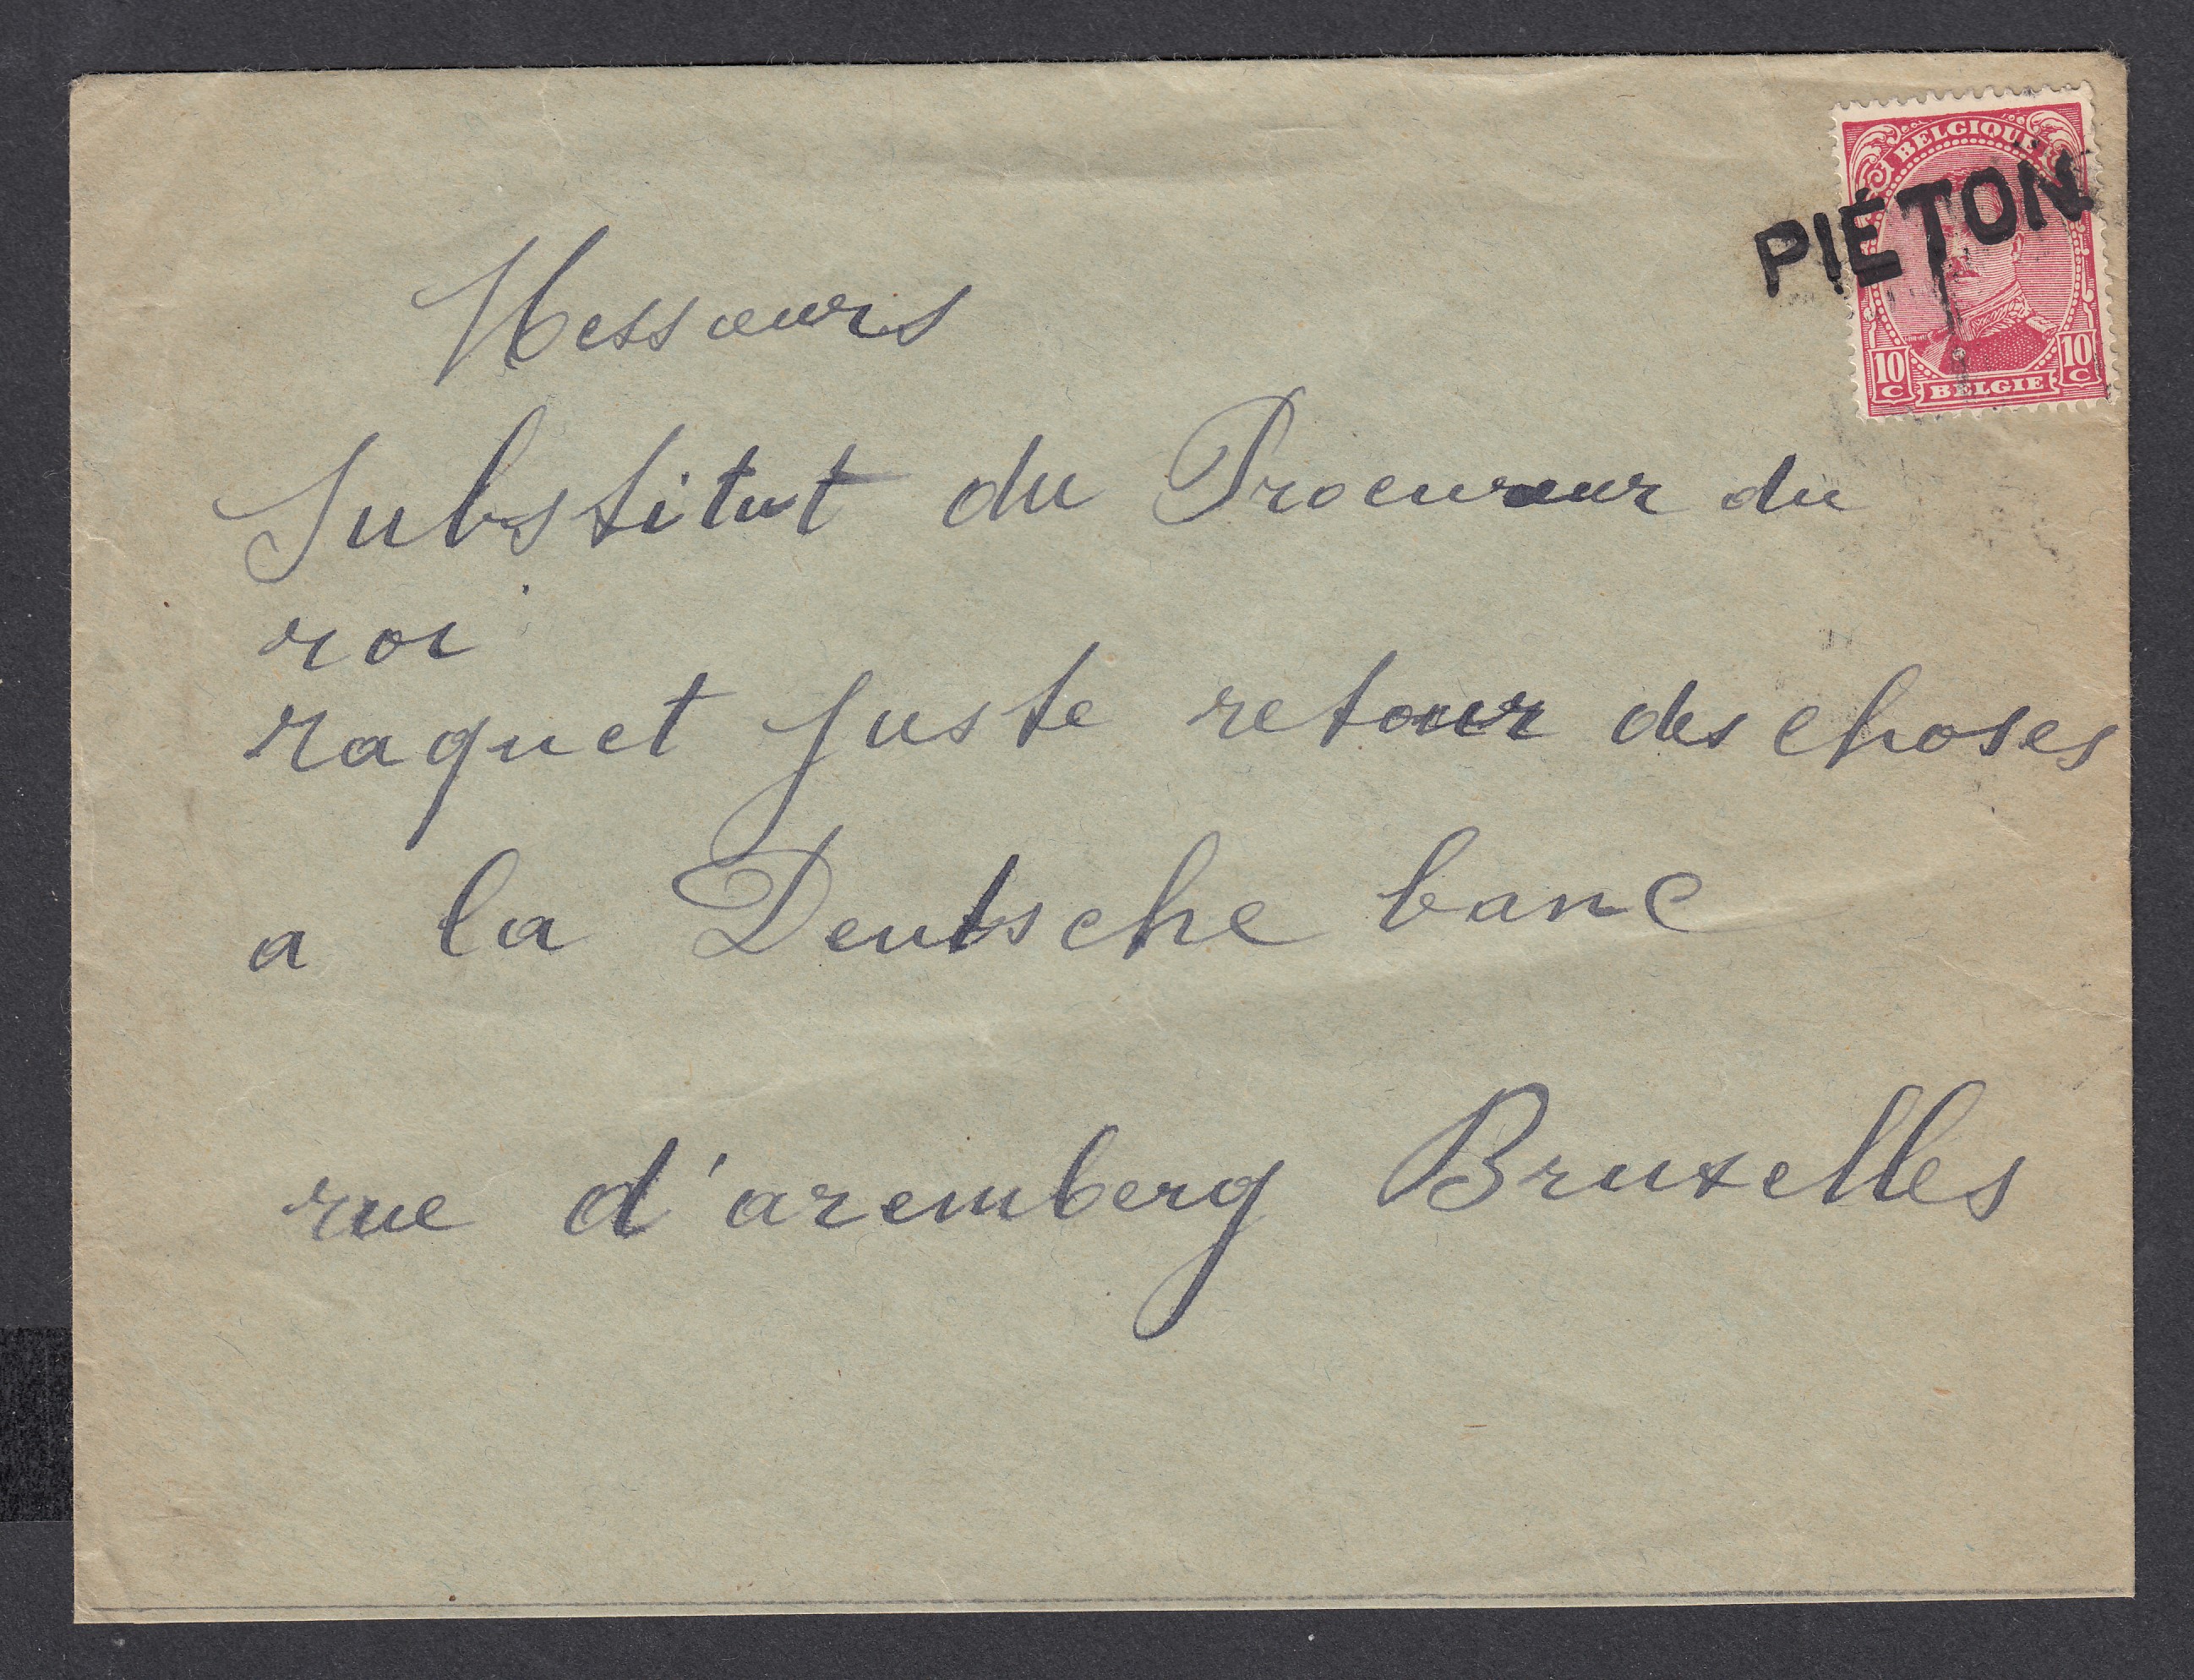 BELGIQUE
PIÉTON
10 C 10 C
BELGIE
Messeurs
Substitut du Procureur du
roi
raquet juste retour des choses
a la Deutsche banc
rue d'aremberg Bruxelles